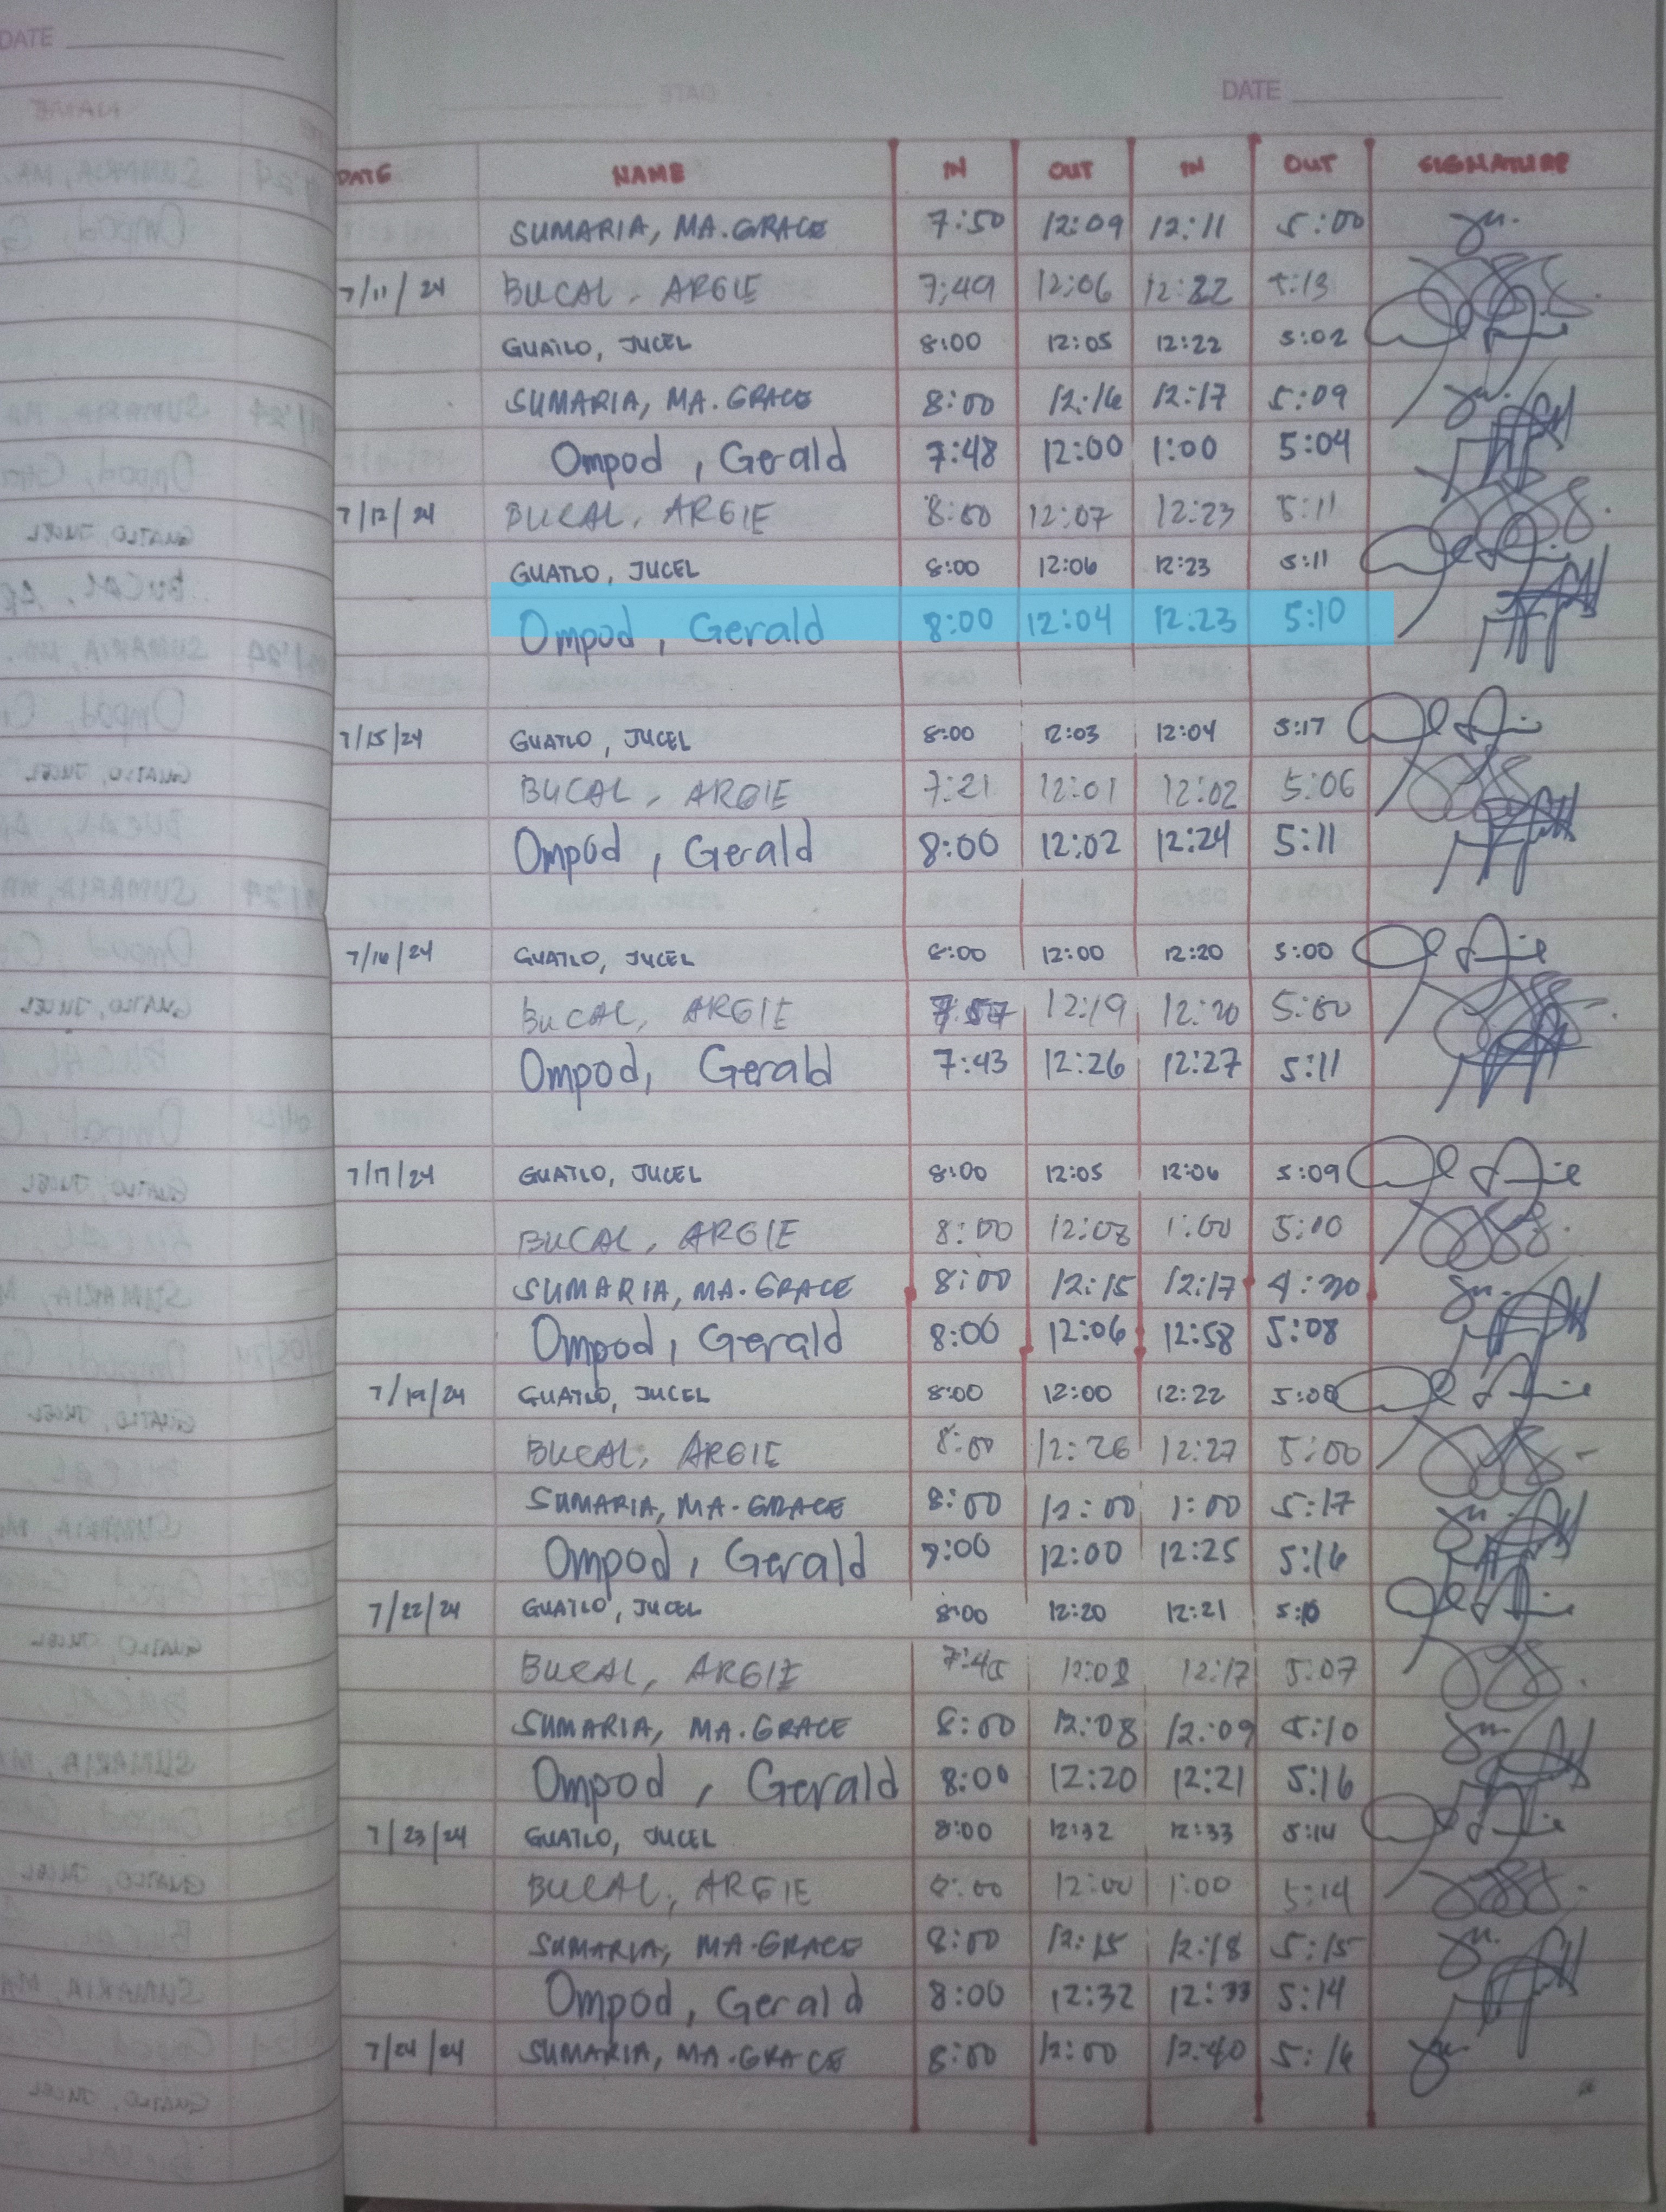 DATE
DATE
DATE NAME IN OUT IN OUT SIGNATURE
SUMARIA, MA. GRACE 7:50 12:09 12:11 5:00
7/11/24 BUCAL, ARGIE 7:49 12:06 12:22 5:13
GUATLO, JUCEL 8:00 12:05 12:22 5:02
SUMARIA, MA. GRACE 8:00 12:16 12:17 5:09
Ompod, Gerald 7:48 12:00 1:00 5:04
7/12/24 BUCAL, ARGIE 8:00 12:07 12:23 5:11
GUATLO, JUCEL 8:00 12:06 12:23 5:11
Ompod, Gerald 8:00 12:04 12:23 5:10
7/15/24 GUATLO, JUCEL 8:00 12:03 12:04 5:17
BUCAL, ARGIE 7:21 12:01 12:02 5:06
Ompod, Gerald 8:00 12:02 12:24 5:11
7/16/24 GUATLO, JUCEL 8:00 12:00 12:20 5:00
BUCAL, ARGIE 12:19 12:20 5:00
Ompod, Gerald 7:43 12:26 12:27 5:11
7/17/24 GUATLO, JUCEL 8:00 12:05 12:06 5:09
BUCAL, ARGIE 8:00 12:08 1:00 5:00
SUMARIA, MA. GRACE 8:00 12:15 12:17 4:30
Ompod, Gerald 8:00 12:06 12:58 5:08
7/19/24 GUATLO, JUCEL 8:00 12:00 12:22 5:00
BUCAL, ARGIE 8:00 12:26 12:27 5:00
SUMARIA, MA. GRACE 8:00 12:00 1:00 5:17
Ompod, Gerald 12:00 12:25 5:16
7/22/24 GUATLO, JUCEL 8:00 12:20 12:21
BUCAL, ARGIE 7:45 12:08 12:17 5:07
SUMARIA, MA. GRACE 8:00 12:08 12:09 5:10
Ompod, Gerald 8:00 12:20 12:21 5:16
7/23/24 GUATLO, JUCEL 8:00 12:32 12:33 5:14
BUCAL, ARGIE 8:00 12:00 1:00 5:14
SUMARIA, MA. GRACE 8:00 12:15 12:18 5:15
Ompod, Gerald 8:00 12:32 12:33 5:14
7/24/24 SUMARIA, MA. GRACE 8:00 12:00 12:40 5:16